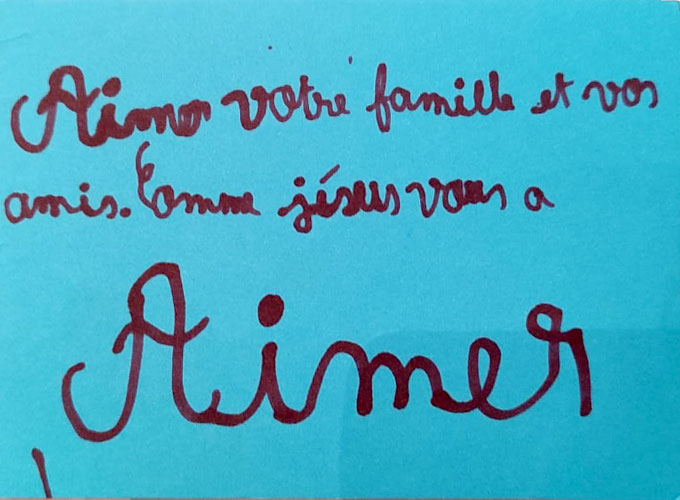 Aimer votre famille et vos
amis. Comme jésus vous a
Aimer